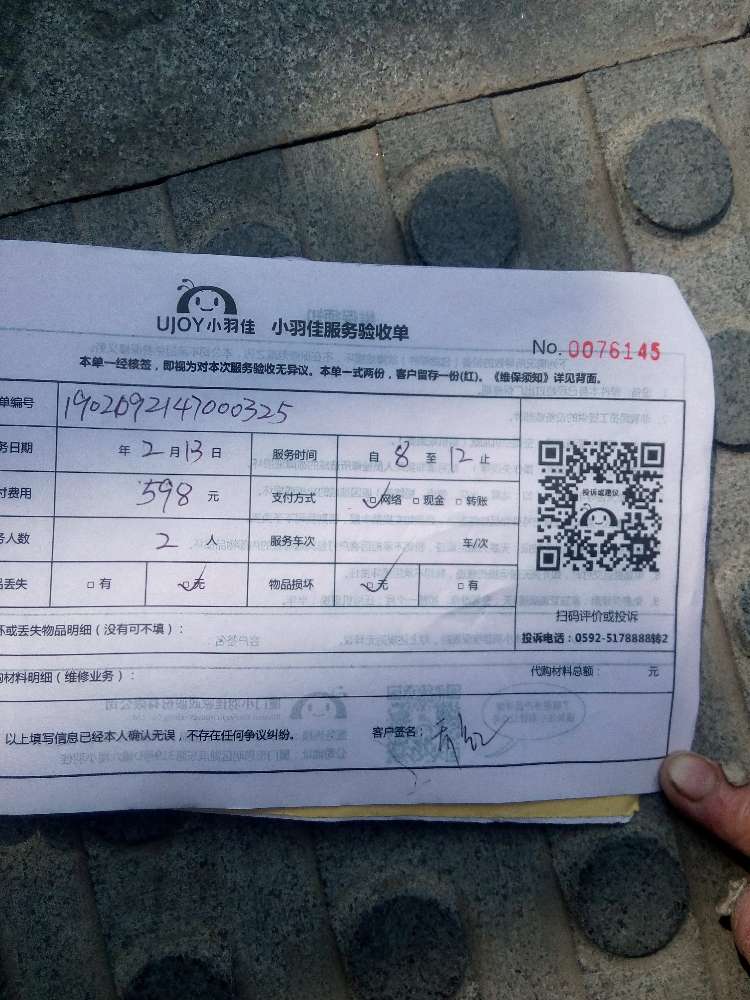 UJOY小羽佳 小羽佳服务验收单
No. 0076145
本单一经核签，即视为对本次服务验收无异议。本单一式两份，客户留存一份(红)。《维保须知》详见背面。
单编号 1902092147000325
务日期 年 2 月 13 日 服务时间 自 8 至 12 止
付费用 598 元 支付方式 ☑网络 □现金 □转账
务人数 2 人 服务车次 车/次
品丢失 □有 ☑无 物品损坏 ☑无 □有
投诉或建议
扫码评价或投诉
投诉电话：0592-5178888转2
坏或丢失物品明细（没有可不填）：
购材料明细（维修业务）： 代购材料总额： 元
以上填写信息已经本人确认无误，不存在任何争议纠纷。 客户签名：